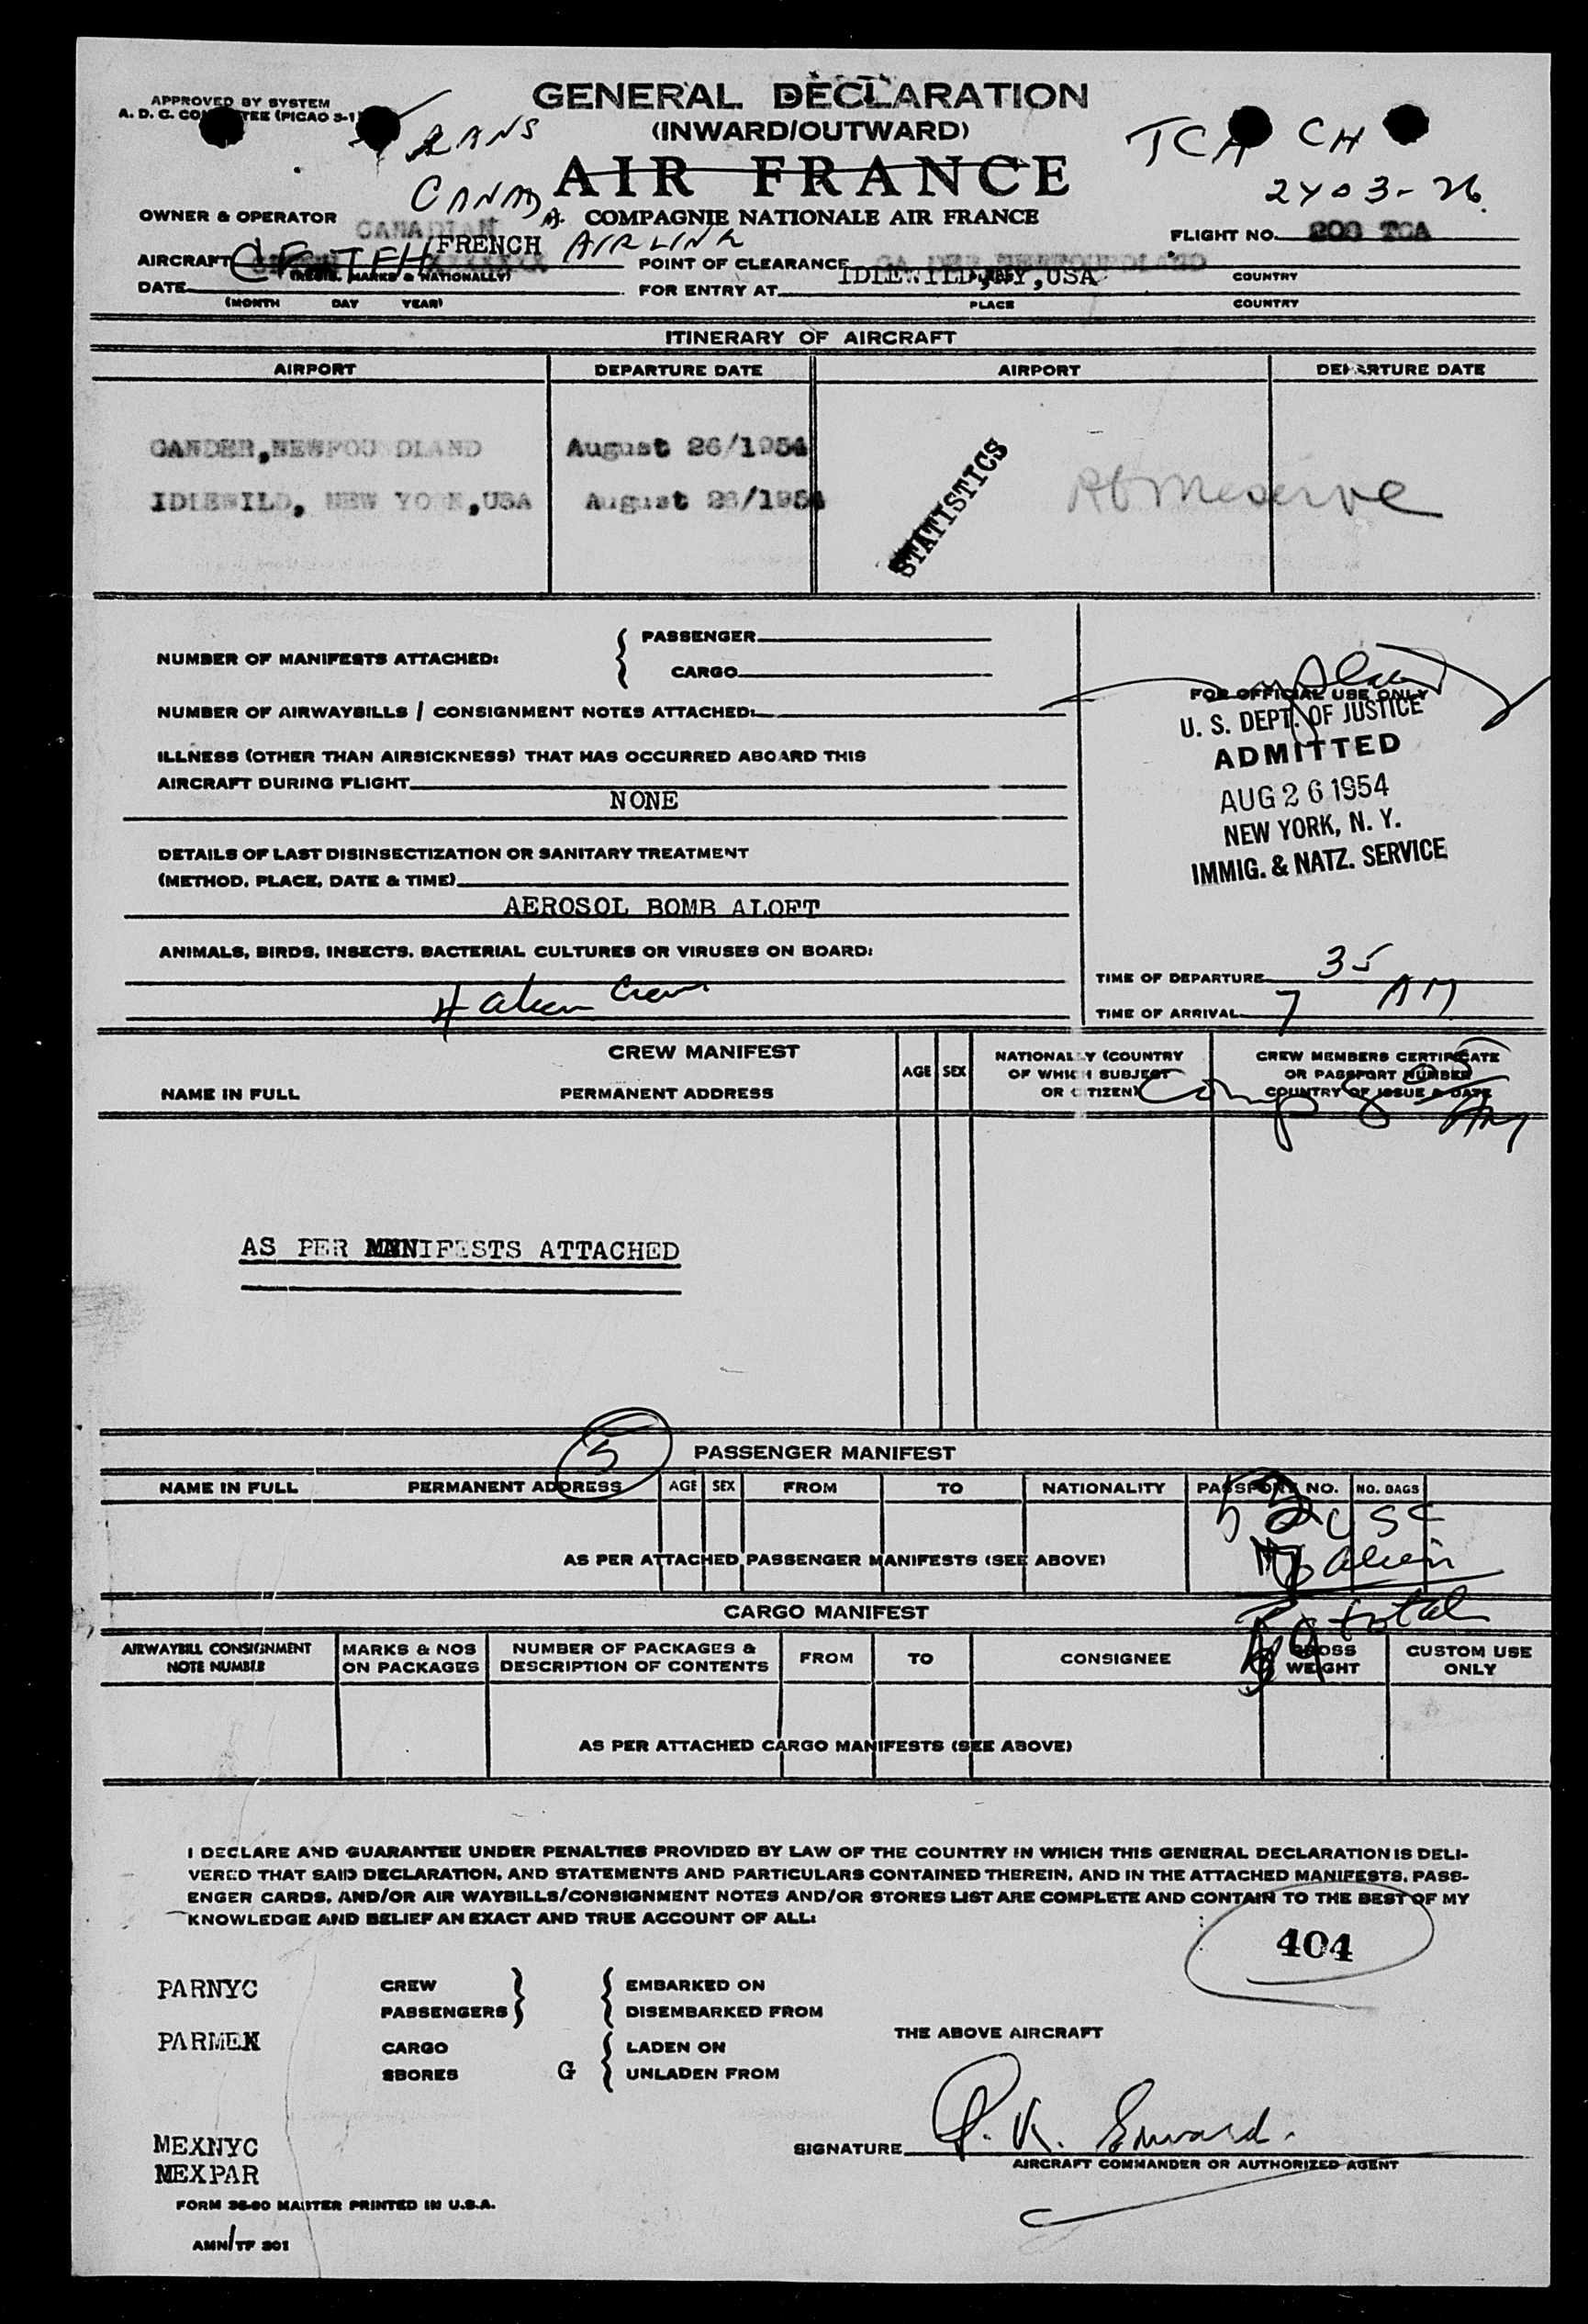 GENERAL DECLARATION
(INWARD/OUTWARD)
APPROVED BY SYSTEM
A. D. C. (PICAO 3-1)
TRANS
CANADA
AIR FRANCE
TCA CH
2403-26
COMPAGNIE NATIONALE AIR FRANCE
OWNER & OPERATOR CANADIAN
FLIGHT NO. TCA
FRENCH AIRLINE
AIRCRAFT CF-TFH
(REGIS. MARKS & NATIONALLY)
POINT OF CLEARANCE NEWFOUNDLAND
COUNTRY
DATE
(MONTH DAY YEAR)
FOR ENTRY AT IDLEWILD, NY, USA
PLACE COUNTRY
ITINERARY OF AIRCRAFT
AIRPORT DEPARTURE DATE AIRPORT DEPARTURE DATE
GANDER, NEWFOUNDLAND August 26/1954
IDLEWILD, NEW YORK, USA August 26/1954
STATISTICS
Meserve
NUMBER OF MANIFESTS ATTACHED:
PASSENGER
CARGO
NUMBER OF AIRWAYBILLS / CONSIGNMENT NOTES ATTACHED:
ILLNESS (OTHER THAN AIRSICKNESS) THAT HAS OCCURRED ABOARD THIS
AIRCRAFT DURING FLIGHT
NONE
DETAILS OF LAST DISINSECTIZATION OR SANITARY TREATMENT
(METHOD, PLACE, DATE & TIME)
AEROSOL BOMB ALOFT
ANIMALS, BIRDS, INSECTS, BACTERIAL CULTURES OR VIRUSES ON BOARD:
4 alien Crew
FOR OFFICIAL USE ONLY
U. S. DEPT. OF JUSTICE
ADMITTED
AUG 26 1954
NEW YORK, N. Y.
IMMIG. & NATZ. SERVICE
TIME OF DEPARTURE 35
TIME OF ARRIVAL 7 AM
CREW MANIFEST
NAME IN FULL PERMANENT ADDRESS
AGE SEX
NATIONALLY (COUNTRY
OF WHICH SUBJECT
OR CITIZEN)
CREW MEMBERS CERTIFICATE
OR PASSPORT NUMBER
COUNTRY OF ISSUE & DATE
Comp 8 05 AM
AS PER MANIFESTS ATTACHED
5
PASSENGER MANIFEST
NAME IN FULL PERMANENT ADDRESS AGE SEX FROM TO NATIONALITY PASSPORT NO. NO. BAGS
USC
Alien
total
AS PER ATTACHED PASSENGER MANIFESTS (SEE ABOVE)
CARGO MANIFEST
AIRWAYBILL CONSIGNMENT
NOTE NUMBER
MARKS & NOS
ON PACKAGES
NUMBER OF PACKAGES &
DESCRIPTION OF CONTENTS
FROM TO CONSIGNEE
GROSS
WEIGHT
CUSTOM USE
ONLY
AS PER ATTACHED CARGO MANIFESTS (SEE ABOVE)
I DECLARE AND GUARANTEE UNDER PENALTIES PROVIDED BY LAW OF THE COUNTRY IN WHICH THIS GENERAL DECLARATION IS DELI-
VERED THAT SAID DECLARATION, AND STATEMENTS AND PARTICULARS CONTAINED THEREIN, AND IN THE ATTACHED MANIFESTS, PASS-
ENGER CARDS, AND/OR AIR WAYBILLS/CONSIGNMENT NOTES AND/OR STORES LIST ARE COMPLETE AND CONTAIN TO THE BEST OF MY
KNOWLEDGE AND BELIEF AN EXACT AND TRUE ACCOUNT OF ALL:
404
PARNYC
CREW
PASSENGERS
EMBARKED ON
DISEMBARKED FROM
THE ABOVE AIRCRAFT
PARMEX
CARGO
SBORES G
LADEN ON
UNLADEN FROM
MEXNYC
MEXPAR
SIGNATURE
AIRCRAFT COMMANDER OR AUTHORIZED AGENT
FORM 36-80 MASTER PRINTED IN U.S.A.
AMN/TF 301